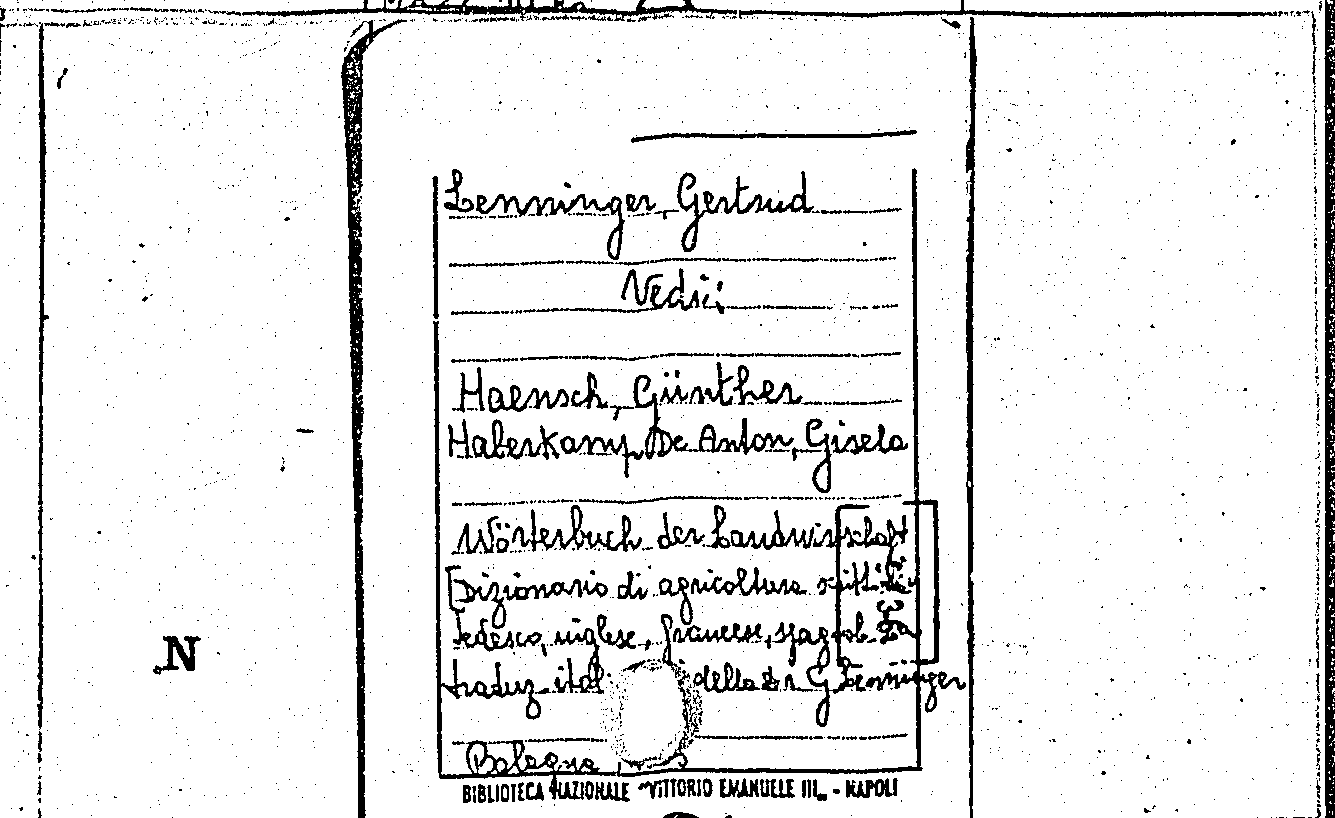 Lenninger, Gertrud
Vedi:
Haensch, Günther
Haberkamp De Anton, Gisela
Wörterbuch der Landwirtschaft
[Dizionario di agricoltura
Tedesco, inglese, francese, spagnolo. La
traduz. ital. della Dr. G. Lenninger
Bologna
N
BIBLIOTECA NAZIONALE "VITTORIO EMANUELE III„ - NAPOLI